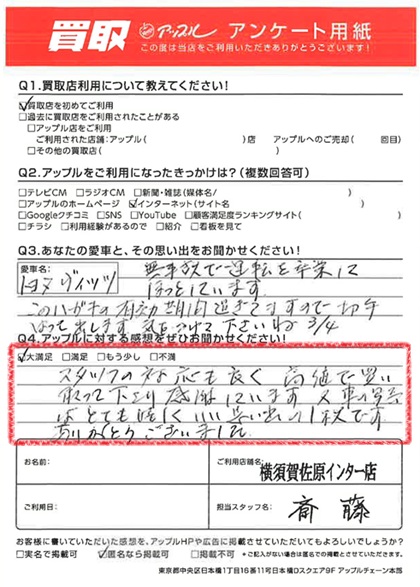 買取 アップル アンケート用紙
この度は当店をご利用いただきありがとうございます!
Q1.買取店利用について教えてください!
☑買取店を初めてご利用
□過去に買取店をご利用されたことがある
□アップル店をご利用
ご利用された店舗:アップル( )店 アップルへのご売却( 回目)
□その他の買取店( )
Q2.アップルをご利用になったきっかけは?(複数回答可)
□テレビCM □ラジオCM □新聞・雑誌(媒体名/ )
□アップルのホームページ ☑インターネット(サイト名 )
□Googleクチコミ □SNS □YouTube □顧客満足度ランキングサイト( )
□チラシ □利用経験があるので □紹介 □看板を見て
Q3.あなたの愛車と、その思い出をお聞かせください!
愛車名: トヨタ ヴィッツ
無事故で運転を卒業に
ほっとしています
このハガキの有効期間過ぎてますので切手
はって出します 気をつけて下さいね 3/4
Q4.アップルに対する感想をぜひお聞かせください!
☑大満足 □満足 □もう少し □不満
スタッフの対応も良く 高値で買い
取って下さり感謝しています 又車の写真
はとても嬉しくいい思い出の1枚です
ありがとうございました
お名前:
ご利用店舗名: 横須賀佐原インター店
ご利用日:
担当スタッフ名: 斎藤
お客様に書いていただいた感想を、アップルHPや広告に掲載させていただいてもよろしいでしょうか?
□実名で掲載可 ☑匿名なら掲載可 □掲載不可 *ご記入がない場合は匿名での掲載とさせていただきます。
東京都中央区日本橋1丁目16番11号日本橋Dスクエア9F アップルチェーン本部